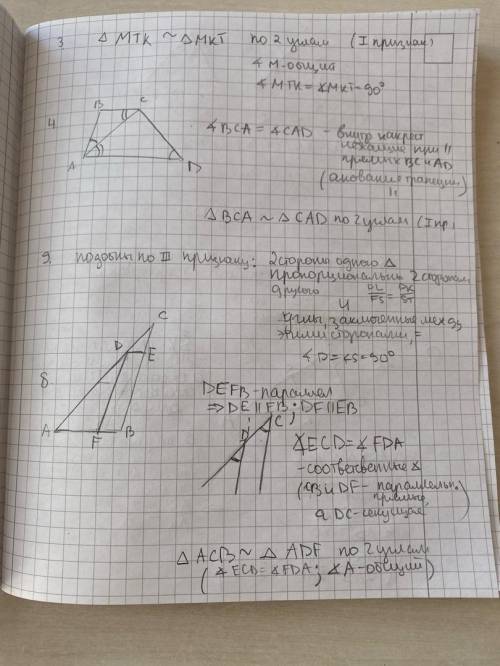 3 △ MTK ~ △MKT по 2 углам (I признак)
∡ M-общий
∡ MTK = ∡MKT = 90°
4.
B C
A D
∡BCA = ∡CAD - внутр накрест
лежащие при ||
прямых BC и AD
(основания трапеции)
△ BCA ~ △ CAD по 2 углам (I пр)
9. подобны по III признаку: 2 стороны одного △
пропорциональны 2 сторонам
другого
и
углы, заключенные между
этими сторонами, =
∡D = ∡S = 90°
C
D E
8
A F B
DEFB - параллел
⇒ DE || FB; DF || EB
D C
∡ECD = ∡FDA
- соответсвенные ∡
(CB и DF - параллельн.
прямые,
а DC-секущая)
△ ACB ~ △ ADF по 2 углам
(∡ECD = ∡FDA; ∡A-общий)